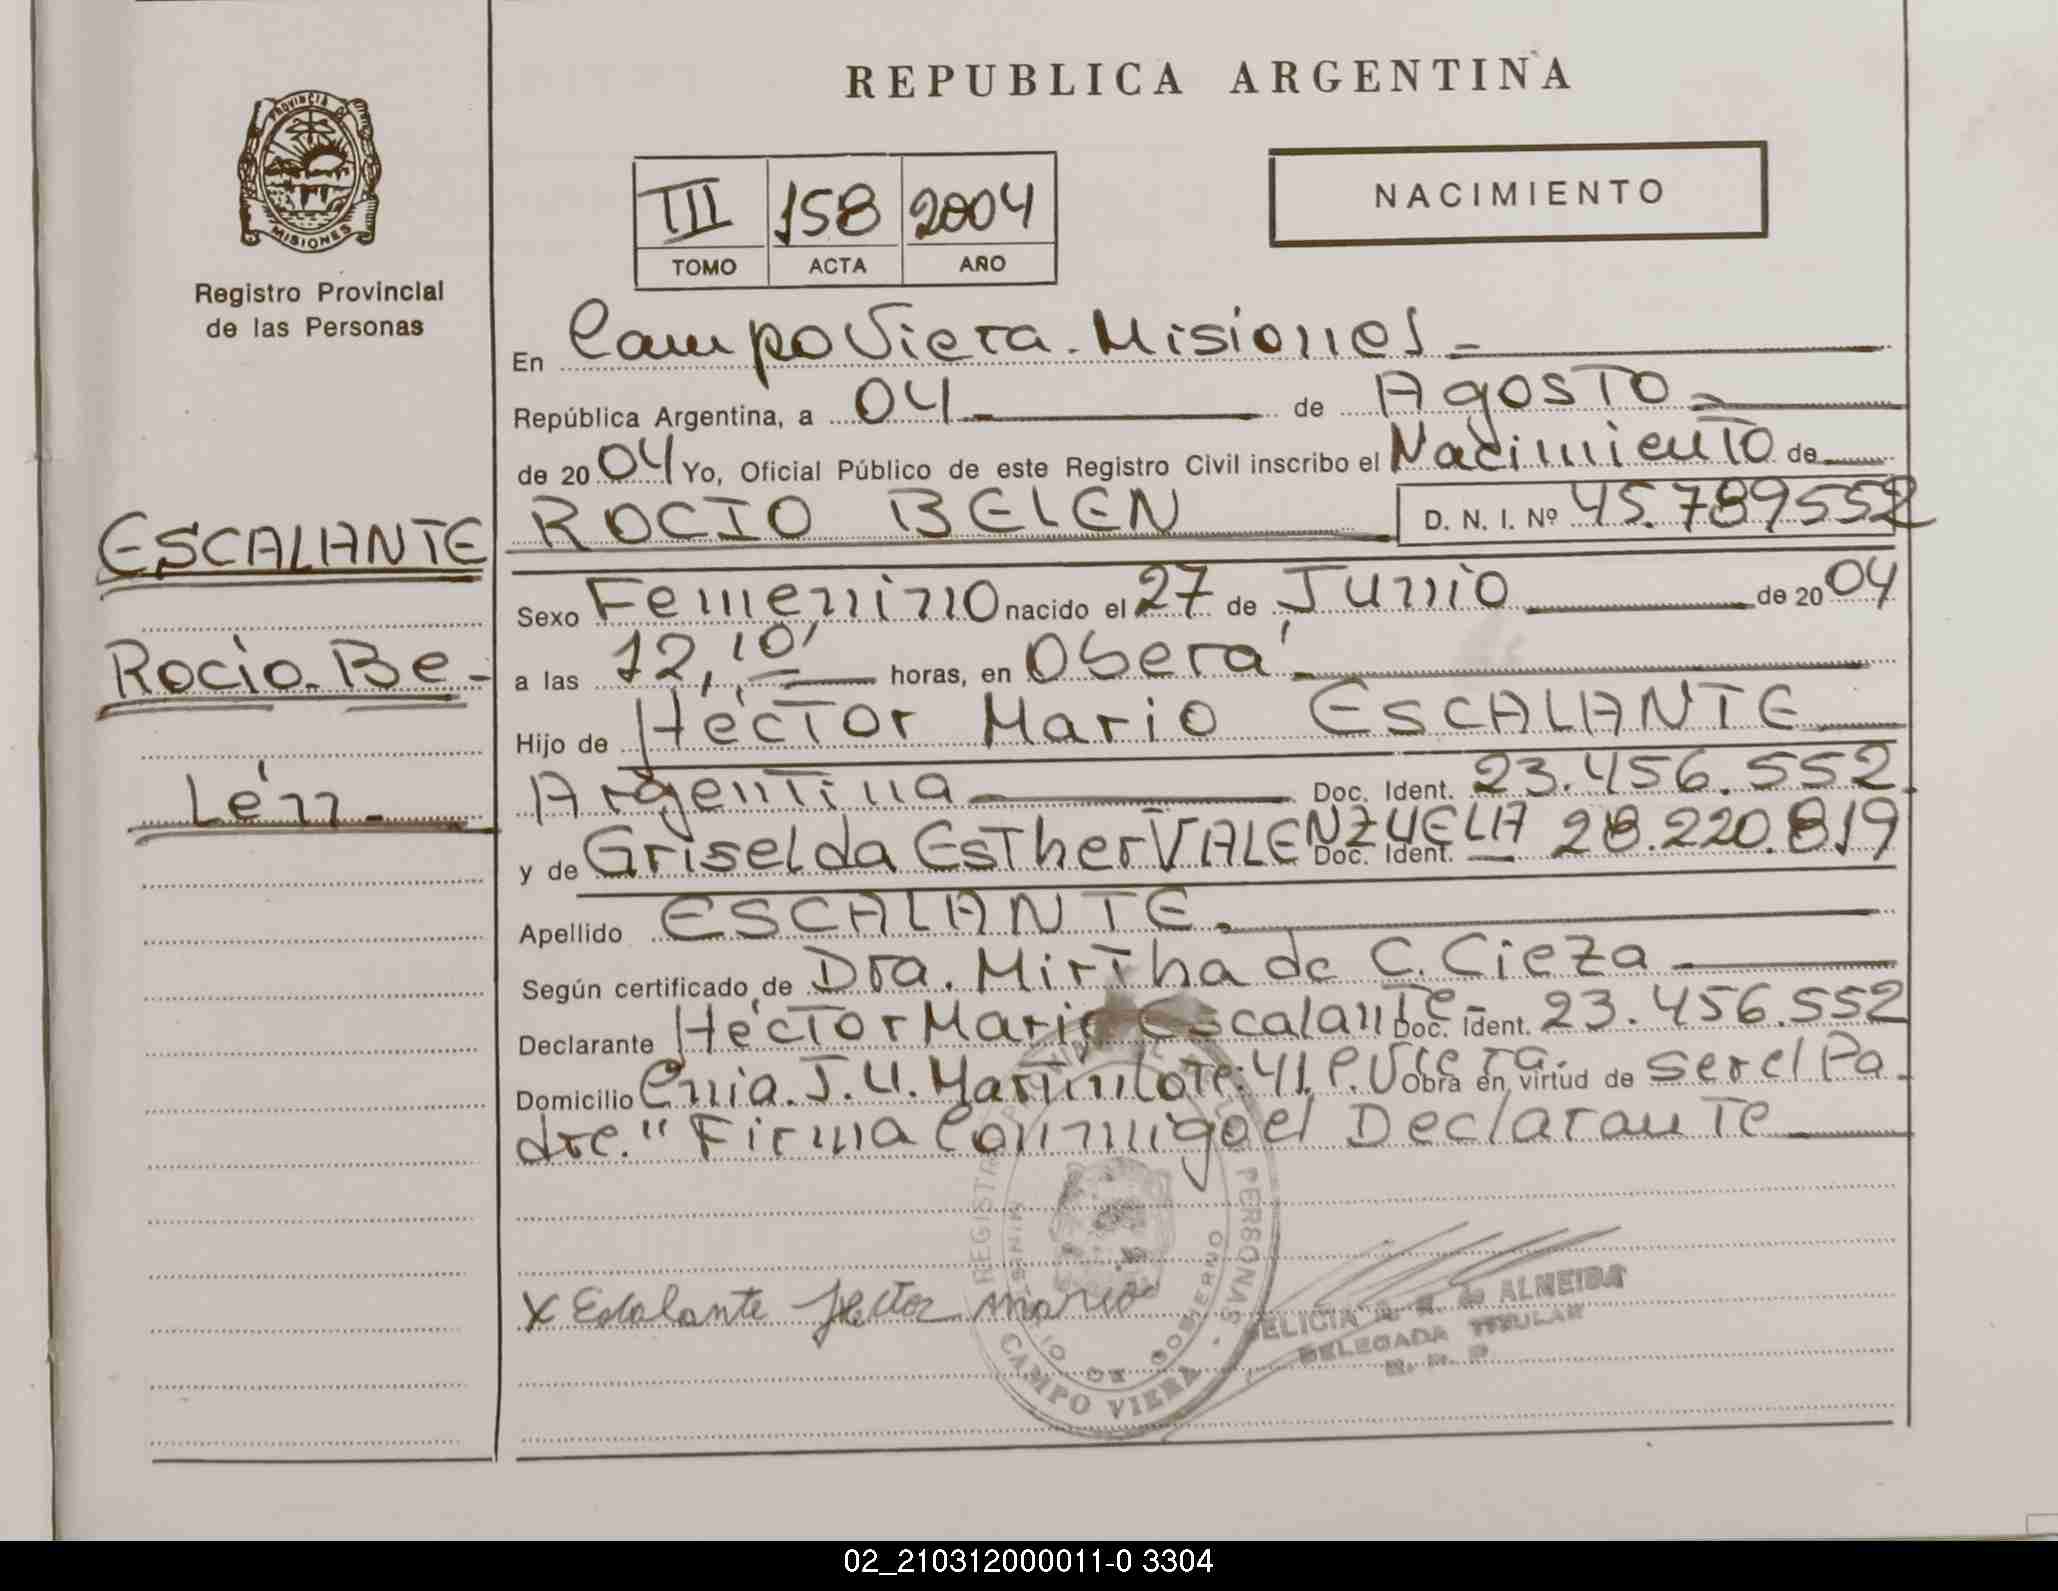 PROVINCIA DE
MISIONES
Registro Provincial
de las Personas
ESCALANTE
Rocio Be-
lén-
REPUBLICA ARGENTINA
III 158 2004
TOMO ACTA AÑO
NACIMIENTO
En Campo Viera. Misiones -
República Argentina, a 04 de Agosto
de 2004 Yo, Oficial Público de este Registro Civil inscribo el Nacimiento de
ROCIO BELEN D. N. I. Nº 45.789552
Sexo Femenino nacido el 27 de Junio de 2004
a las 12,10' horas, en Oberá
Hijo de Héctor Mario ESCALANTE
Argentina Doc. Ident. 23.456.552
y de Griselda Esther VALENZUELA Doc. Ident. 28.220.819
Apellido ESCALANTE.
Según certificado de Dra. Mirtha de C. Cieza
Declarante Héctor Mario Escalante - Doc. Ident. 23.456.552
Domicilio Cnia. J. U. Martin lote: 41. C. Viera. Obra en virtud de ser el Pa
dre." Firma Conmigo el Declarante
X Escalante Hector mario
REGISTRO PERSONAS
MINIS IO DE GOBIERNO
CAMPO VIERA
de ALMEIDA
DELEGADA TITULAR
R. P. P.
02_210312000011-0 3304